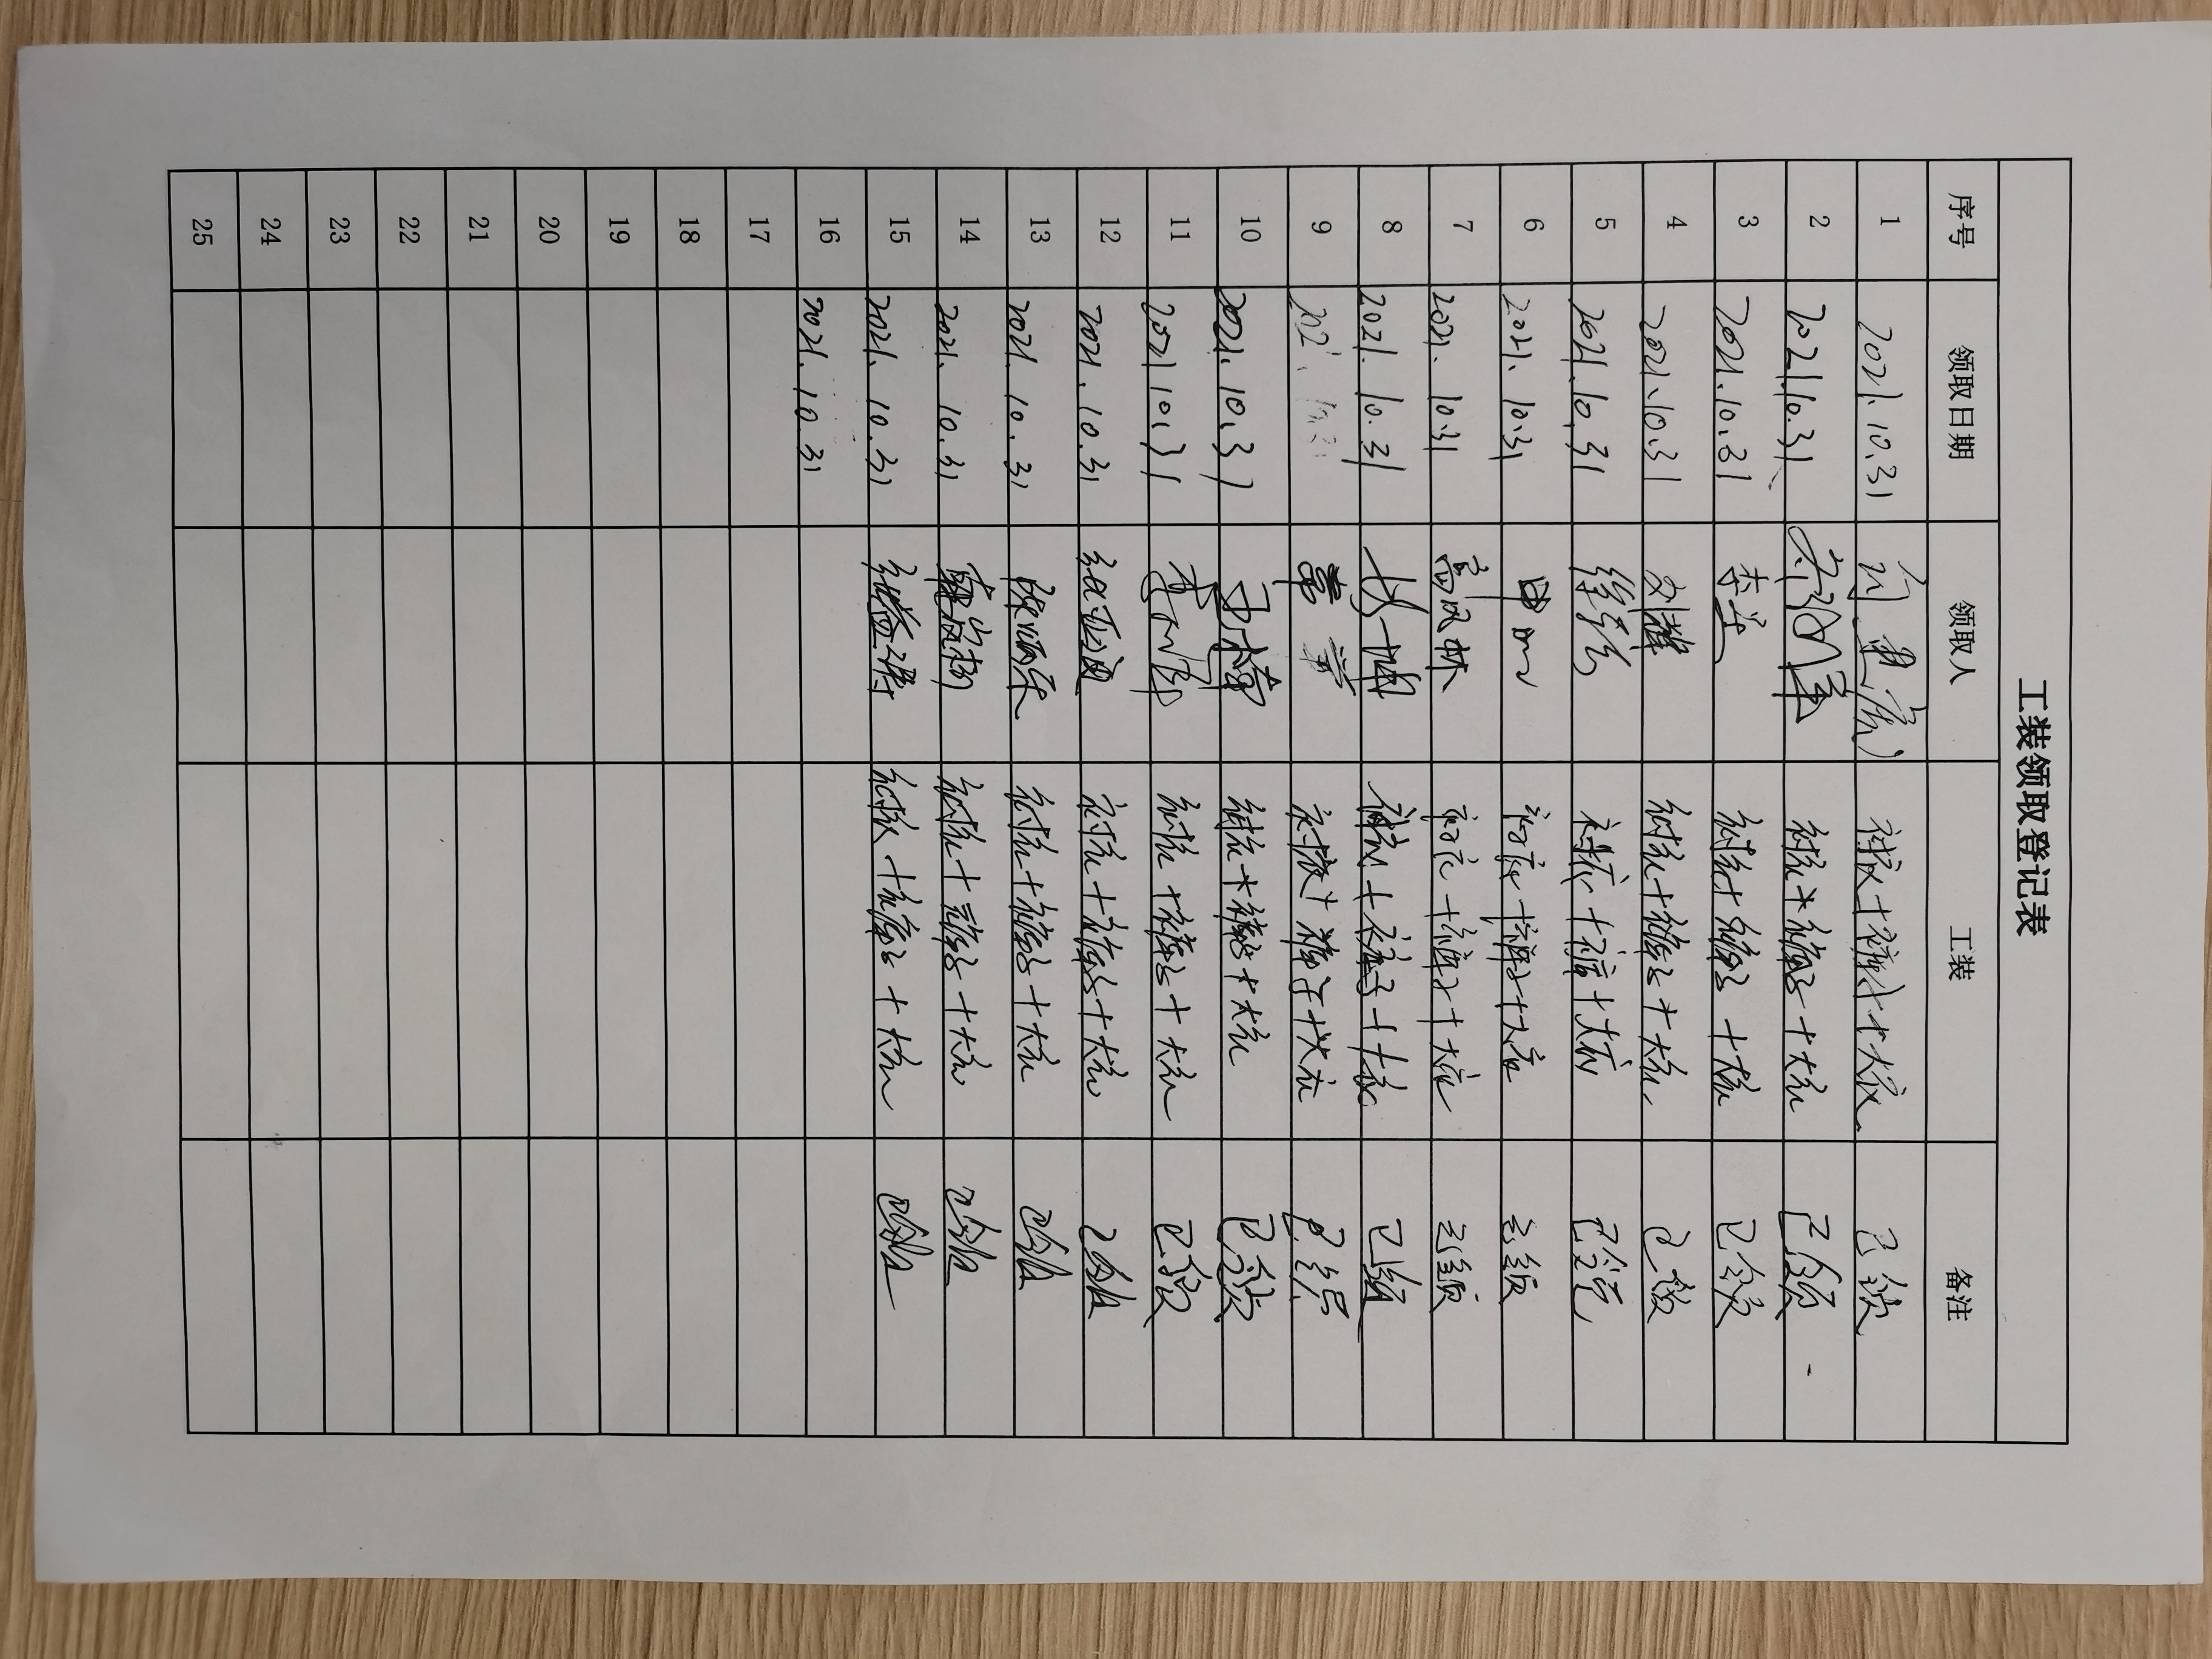 工装领取登记表
序号 领取日期 领取人 工装 备注
1 2021.10.31 衬衣+裤子+大衣 已领
2 2021.10.31 衬衣+裤子+大衣 已领
3 2021.10.31 李兰 衬衣+裤子+大衣 已领
4 2021.10.31 刘 衬衣+裤子+大衣 已领
5 2021.10.31 衬衣+裤+大衣 已领
6 2021.10.31 衬衣+裤子+大衣 已领
7 2021.10.31 高风林 衬衣+裤子+大衣 已领
8 2021.10.31 衬衣+裤子+大衣 已领
9 2021.10.31 衬衣+裤子+大衣 已领
10 2021.10.31 衬衣+裤子+大衣 已领
11 2021.10.31 李 衬衣+裤子+大衣 已领
12 2021.10.31 衬衣+裤子+大衣 已领
13 2021.10.31 衬衣+裤子+大衣 已领
14 2021.10.31 衬衣+裤子+大衣 已领
15 2021.10.31 衬衣+裤子+大衣 已领
16 2021.10.31
17
18
19
20
21
22
23
24
25